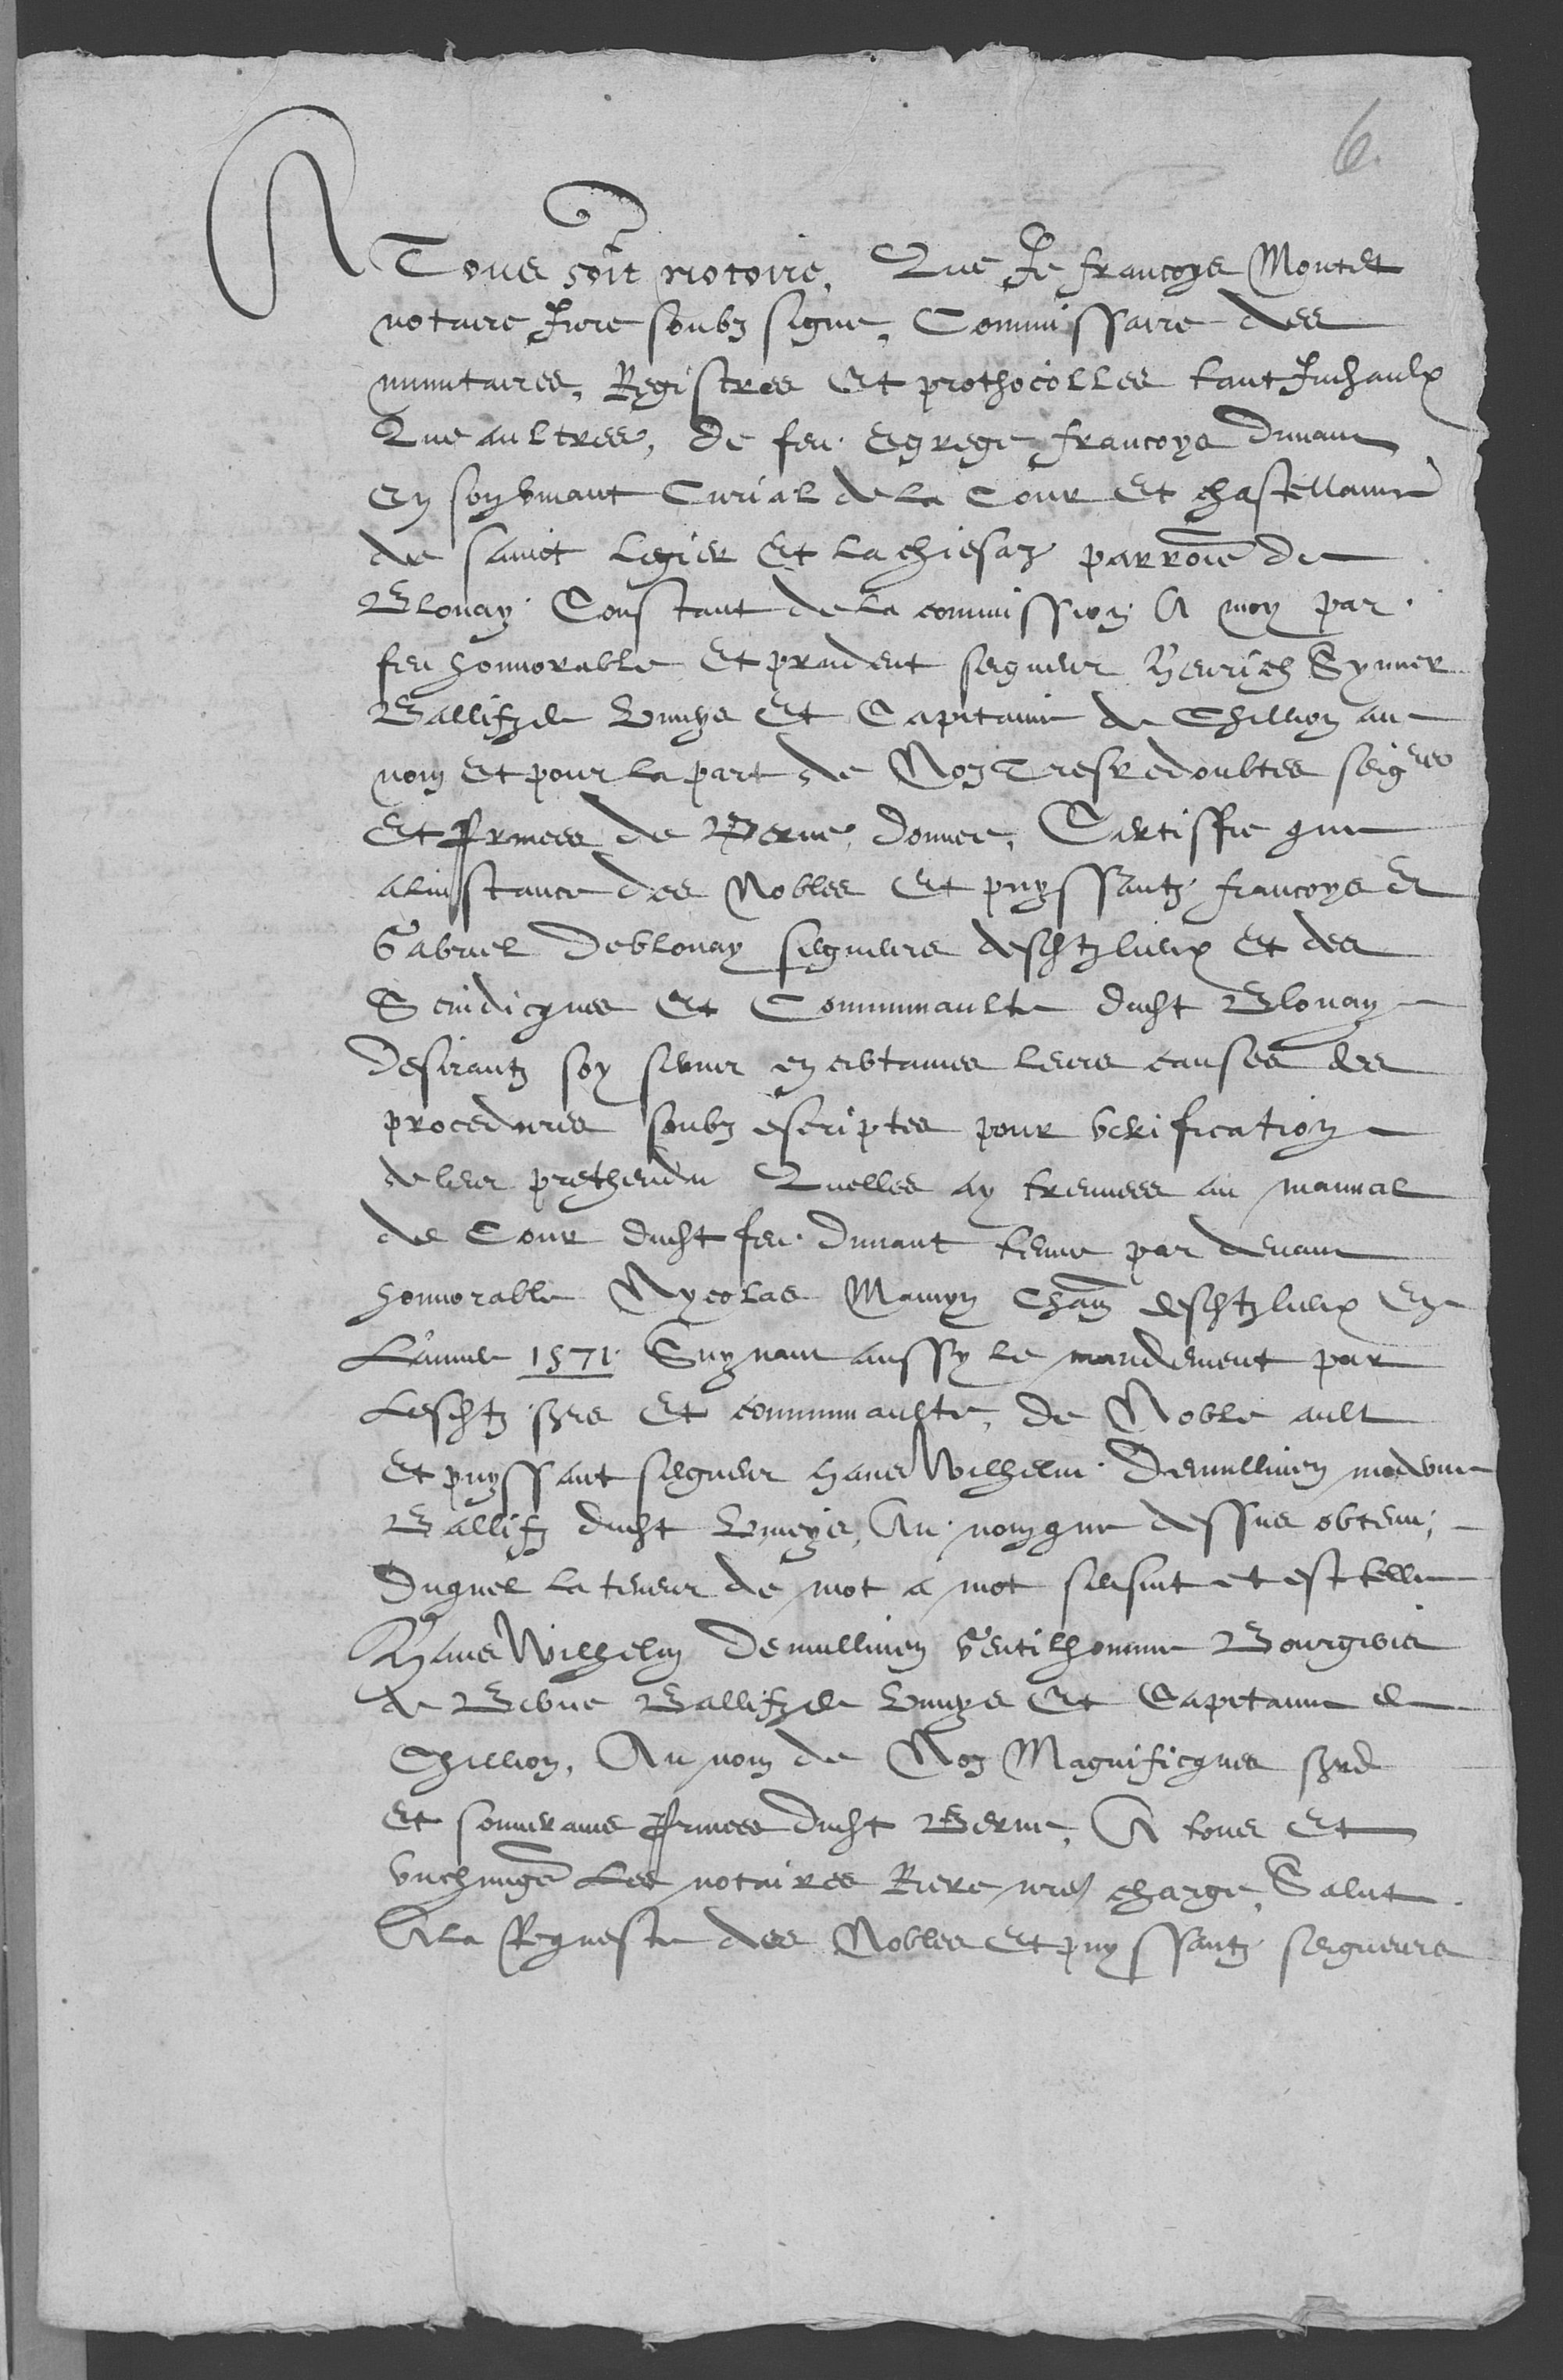 6.
A Tous soit notoire, Que Je francoys Montet
notaire Jure soubz signe, Commissaire des
minutaires, Registres Et prothocolles tant Judiciaulx
Que aultres, de feu Egrege francoys dunant
En son vivant Curial de la Cour Et chastellanie
de sainct legier Et la chiesaz parroiche de
Blonay Constant de la commission A moy par
feu honnorable Et prudent seigneur Henrich Synner
Ballifz de Viveys Et Capitaine de Chillion au
nom Et pour la part de Noz Tresredoubtes seigrs
Et princes de Berne, donnee, Certiffie que
a linstance des Nobles Et puyssantz francoys Et
Gabriel de blonay seigneurs desditz lieux Et des
Scindicques Et Communaulte dudit Blonay
desirantz soy servir en certaines leurs causes des
procedures soubz escriptes pour verification
de leur prethendu Quelles ay trouvees au manual
de Cour dudit feu dunant tenue par devant
honnorable Nycolas Mamyn Chastelain desditz lieux En
Lannee 1571. Suyvant aussy le mandement par
Lesditz srs Et communaulte, de Noble ault
Et puyssant seigneur hans Wilhelm Demullinen moderne
Ballifz dudit Viveys, Au nom que dessus obtenu,
Duquel la teneur de mot a mot sensuit et est telle
Hans Wilhelm Demullinen Gentilhomme Bourgeois
de Berne Ballifz de Viveys Et Capitaine de
Chillion, Au nom de Noz Magnificques srs
Et souverains princes dudit Berne, A tous Et
vnchungs Les notaires Riere nre charge, Salut.
A la Requeste des Nobles Et puyssantz seigneurs